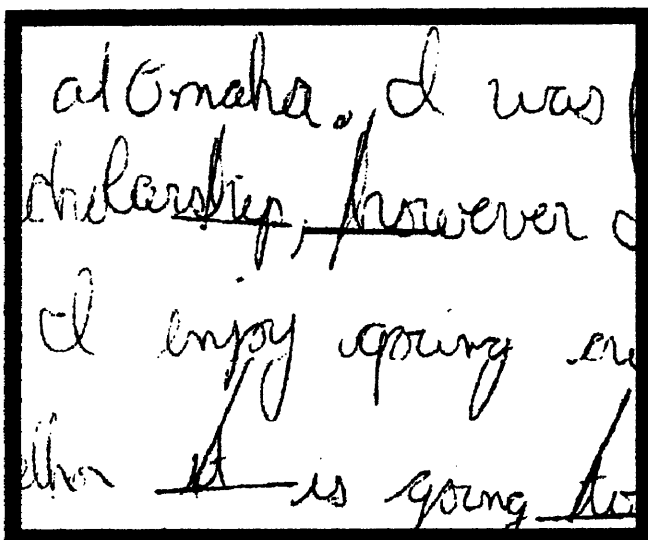 at Omaha. I was
scholarship, however I
I enjoy going
it is going to